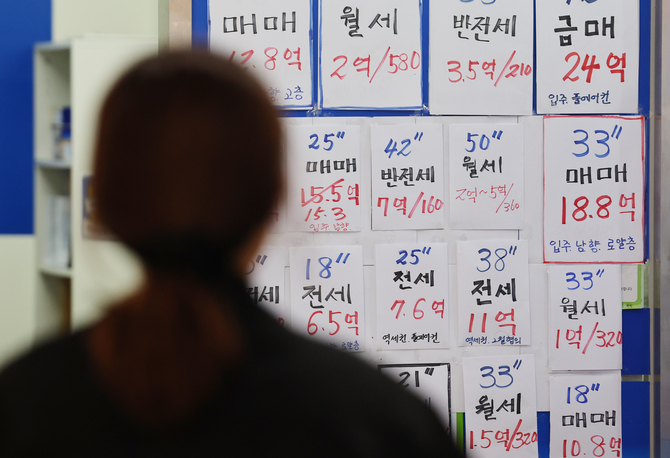 매매
12.8억
입주 고층
월세
2억/580
반전세
3.5억/210
급매
24억
입주. 풀에어컨
25"
매매
15.5억
15.3
42"
반전세
7억/160
50"
월세
2억~5억
/360
33"
매매
18.8억
입주 남향. 로얄층
전세
18"
전세
6.5억
25"
전세
7.6억
역세권. 풀에어컨
38"
전세
11억
33"
월세
1억/320
21"
33"
월세
1.5억/320
18"
매매
10.8억